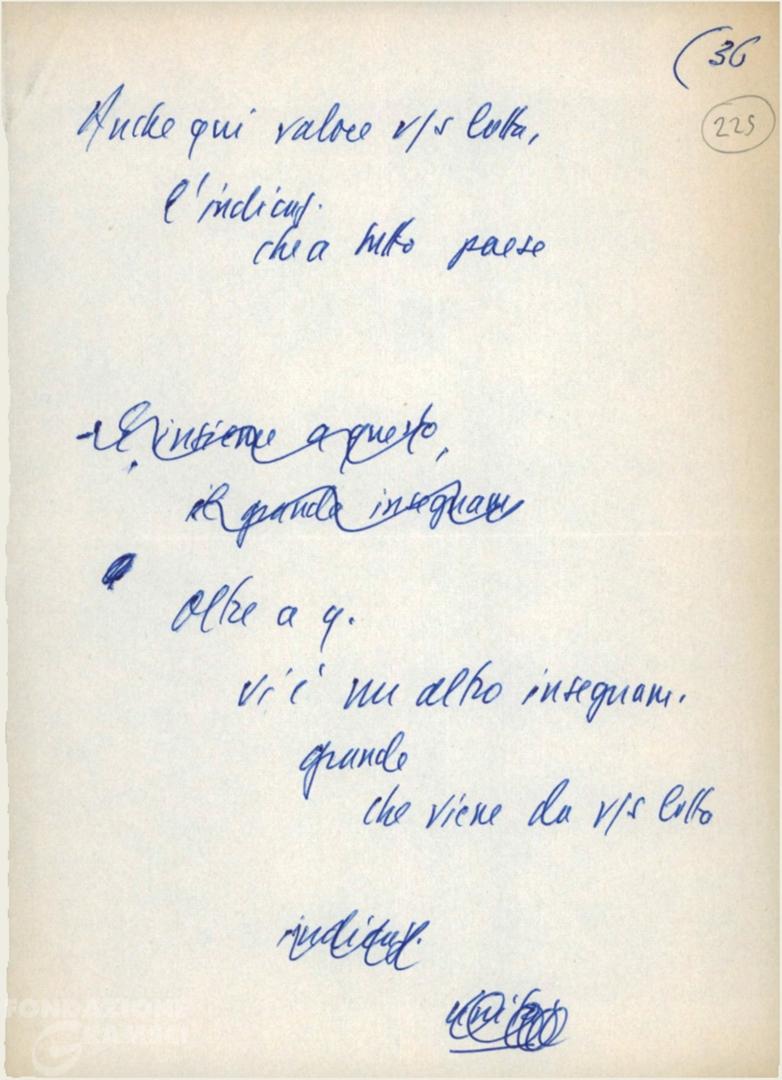 (36
225
Anche qui valore v/s lotta,
l'indicaz.
che a tutto paese
- E, insieme a questo,
il grande insegnam
Oltre a q.
vi è un altro insegnam.
grande
che viene da v/s lotta
indicaz.
FONDAZIONE
GRAMSCI